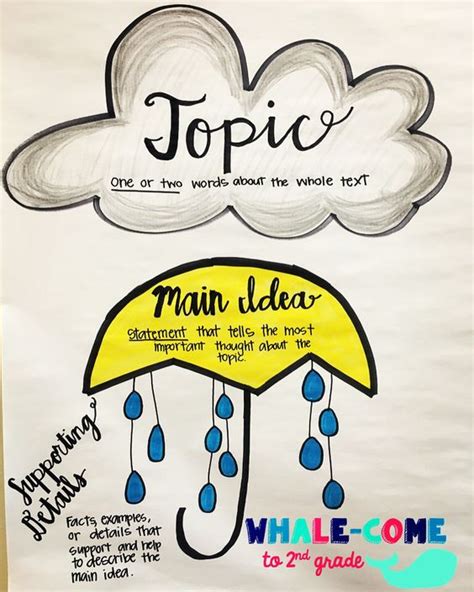 Topic
One or two words about the whole text
Main Idea
Statement that tells the most
important thought about the
topic.
Supporting
Details
Facts, examples,
or details that
support and help
to describe the
main idea.
WHALE-COME
to 2nd grade